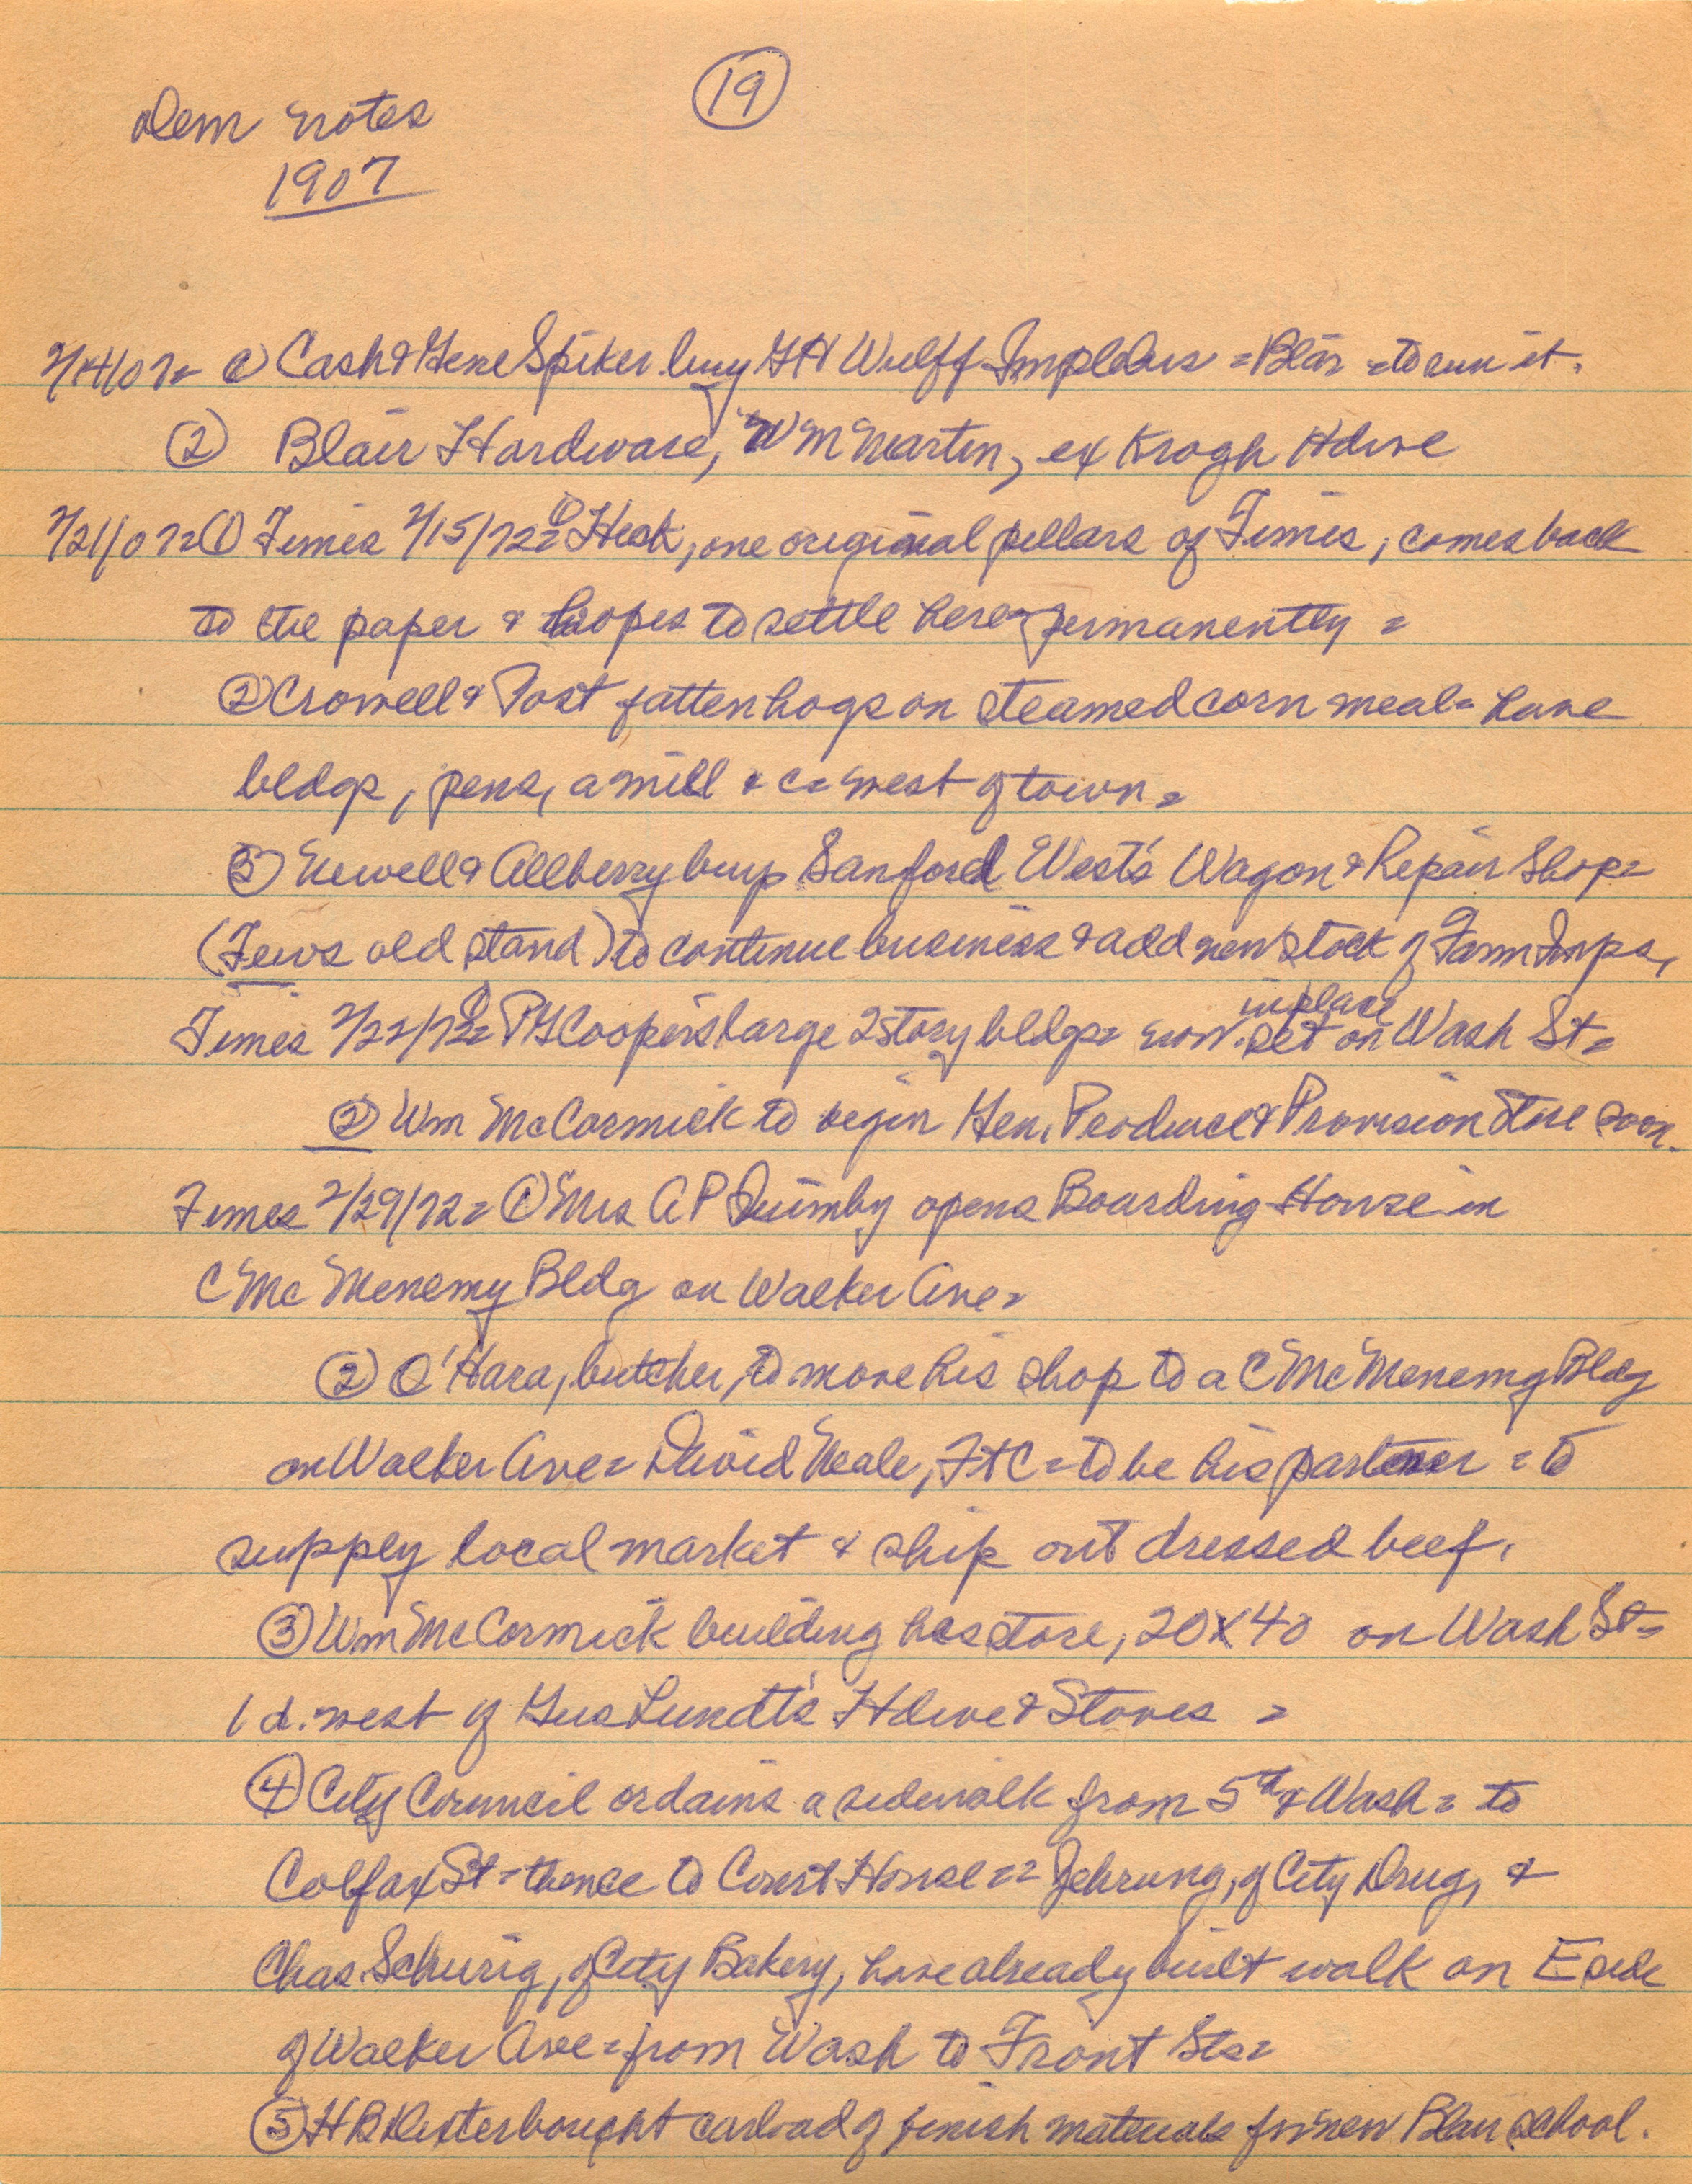 19
Dem Notes
1907
2/14/07= (1) Cash & Gene Spiker buy GH Wulff Imp = Blair = to run it.
(2) Blair Hardware, Wm Martin, ex Krogh Hdwe
2/21/07= (1) Times 2/15/72= (1) Hesk, one original pillars of Times, comes back
to the paper & hopes to settle here permanently =
(2) Crowell & Post fatten hogs on steamed corn meal= have
bldgs, pens, a mill & c= west of town=
(3) Newell & Allberry buy Sanford West's Wagon & Repair Shop=
(Fews old stand) to continue business & add new stock of Farm Imps,
Times 2/22/72= (1) PG Cooper's large 2 story bldgs= now set in place on Wash St=
(2) Wm McCormick to begin Gen. Produce & Provision store soon.
Times 2/29/72= (1) Mrs A P Quimby opens Boarding House in
C McMenemy Bldg on Walker Ave=
(2) O'Hara, butcher, to move his shop to a C McMenemy Bldg
on Walker Ave= David Neale, FtC= to be his partner = to
supply local market & ship out dressed beef.
(3) Wm McCormick building his store, 20x40 on Wash St=
1 d. west of Gus Lundt's Hdwe & Stoves =
(4) City Council ordains a sidewalk from 5th & Wash= to
Colfax St= thence to Court House== Jehrung, of City Drug, &
Chas Schurig, of City Bakery, have already built walk on E side
of Walker Ave= from Wash to Front Sts=
(5) H B Dexter bought carload of finish materials for new Blair School.